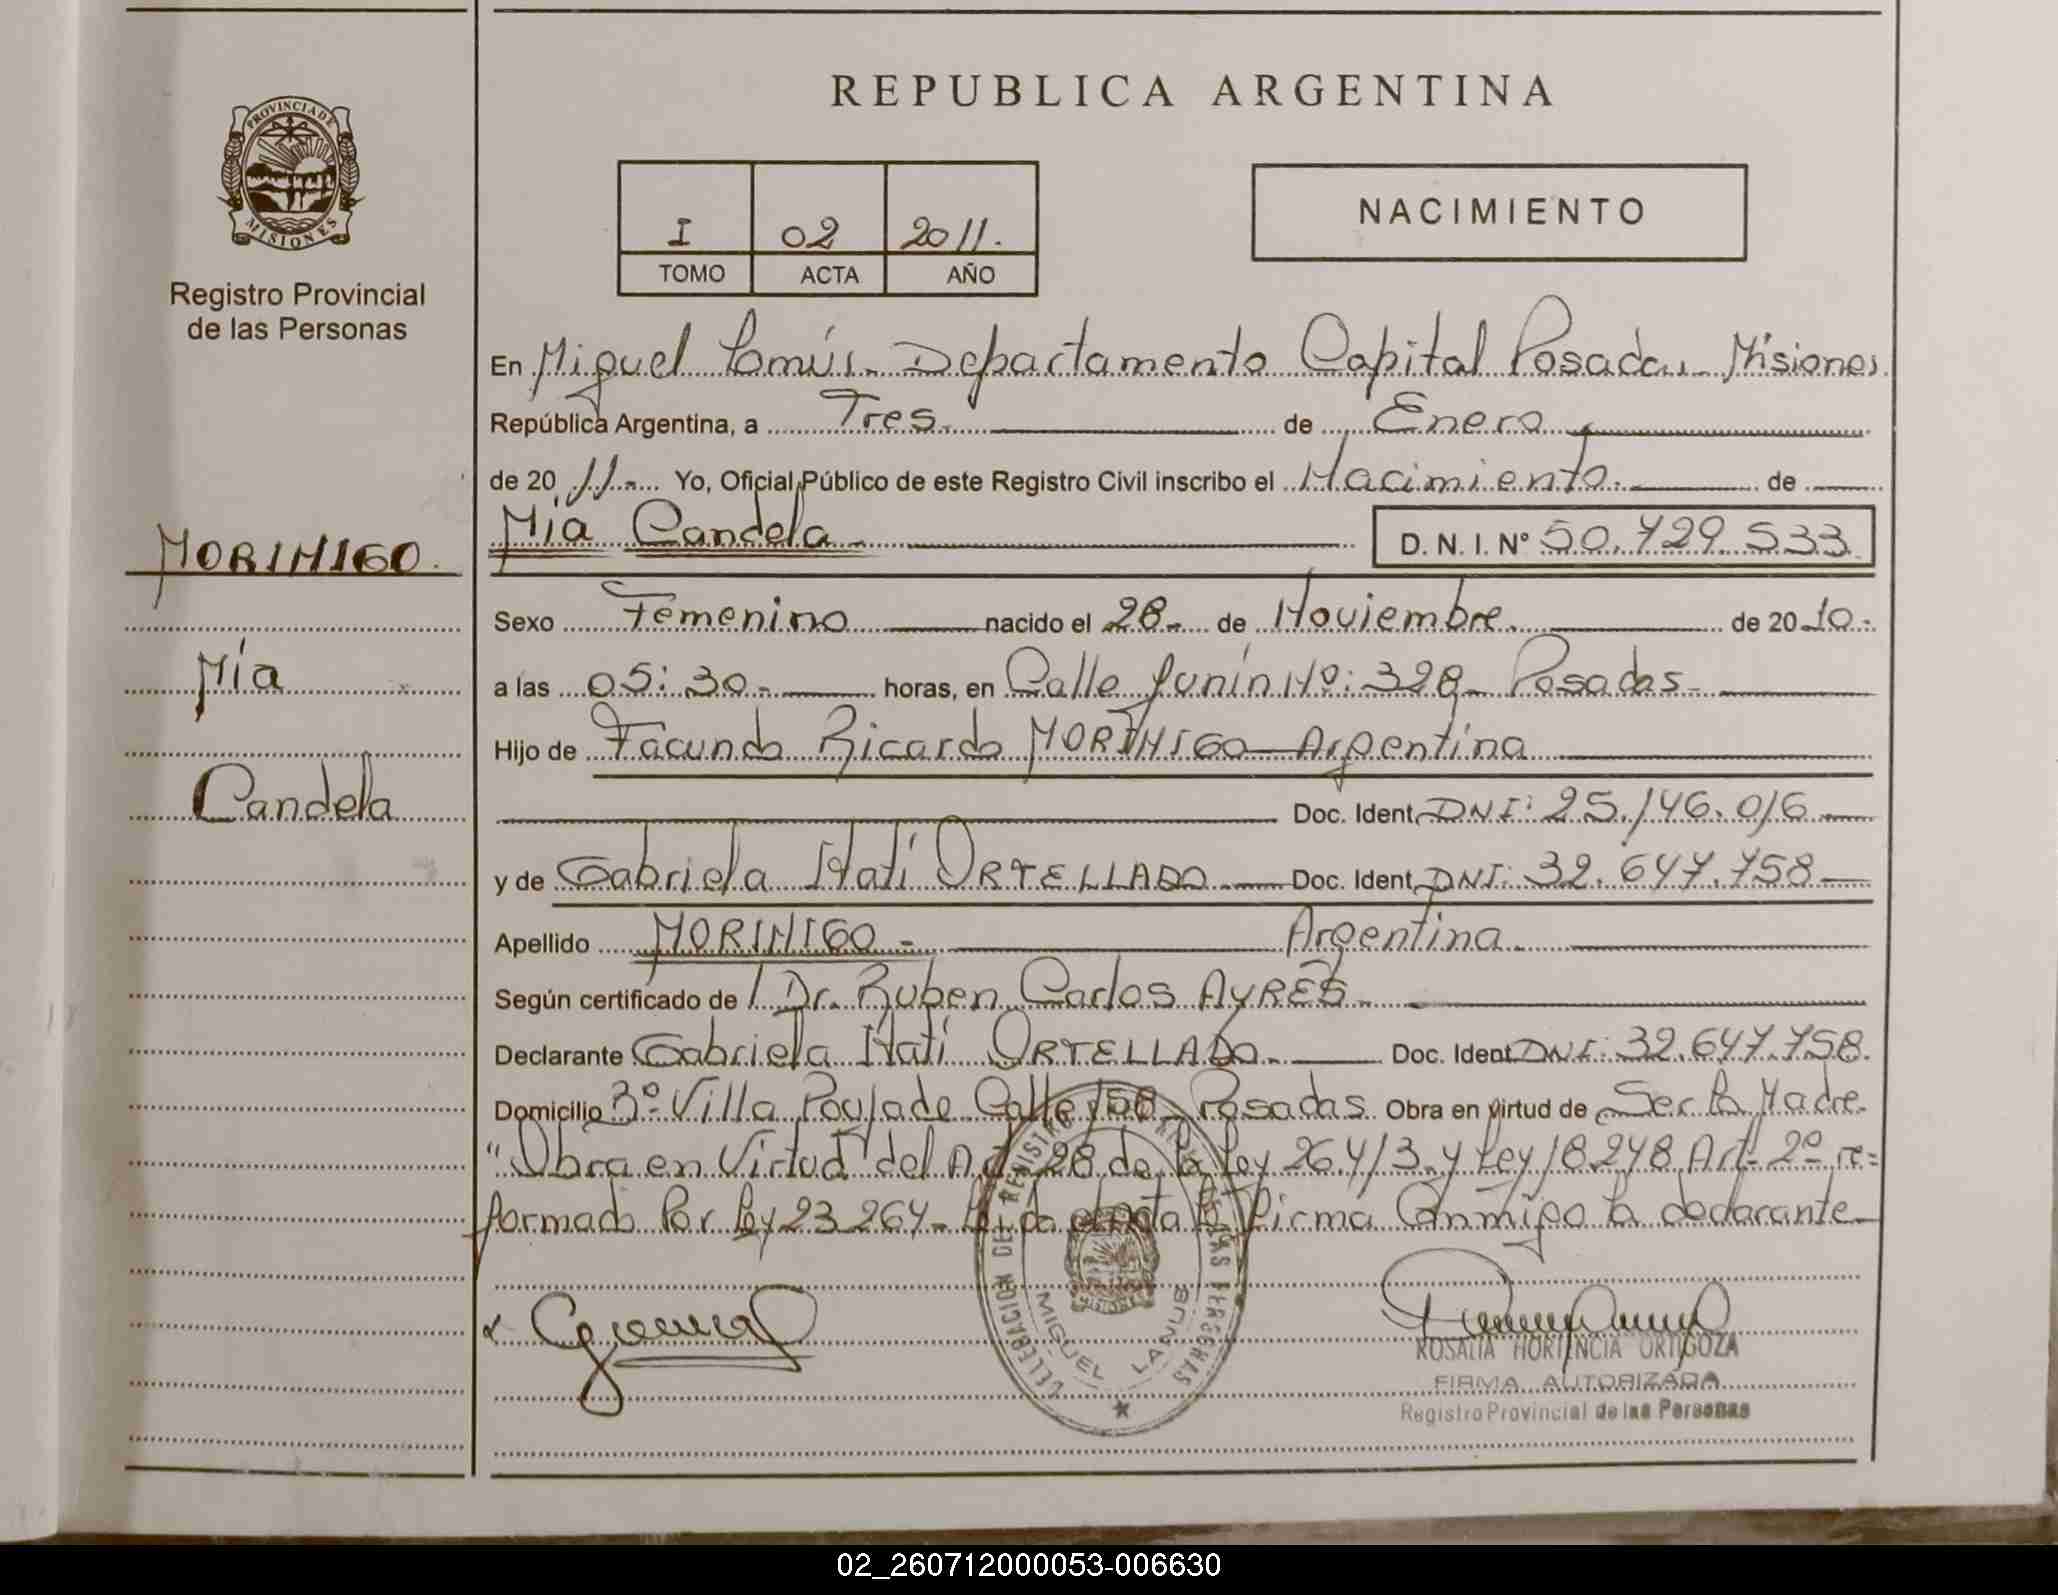 REPUBLICA ARGENTINA
PROVINCIA DE
MISIONES
Registro Provincial
de las Personas
I 02 2011.
TOMO ACTA AÑO
NACIMIENTO
En Miguel Lanús. Departamento Capital Posadas. Misiones
República Argentina, a Tres. de Enero
de 2011.- Yo, Oficial Público de este Registro Civil inscribo el Nacimiento. de
Mía Candela D. N. I. Nº 50.729.533
MORINIGO.
Mía
Candela
Sexo Femenino nacido el 28- de Noviembre. de 2010.-
a las 05:30.- horas, en Calle Junín Nº: 328- Posadas-
Hijo de Facundo Ricardo MORINIGO Argentina
Doc. Ident. DNI: 25.146.016
y de Gabriela Itatí ORTELLADO Doc. Ident. DNI: 32.647.758
Apellido MORINIGO - Argentina.
Según certificado de Dr. Ruben Carlos AYRES
Declarante Gabriela Itatí ORTELLADO. Doc. Ident DNI: 32.647.758.
Domicilio Bº Villa Poujade Calle 158- Posadas. Obra en virtud de Ser la Madre.
"Obra en Virtud del Art. 28 de la Ley 26.413 y Ley 18.248 Art- 2º re=
formado Por Ley 23.264- Leída el acta la Firma Conmigo la declarante
DELEGACION DE REGISTRO DE LAS PERSONAS
MIGUEL LANUS
ROSALIA HORTENCIA ORTIGOZA
FIRMA AUTORIZADA
Registro Provincial de las Personas
02_260712000053-006630